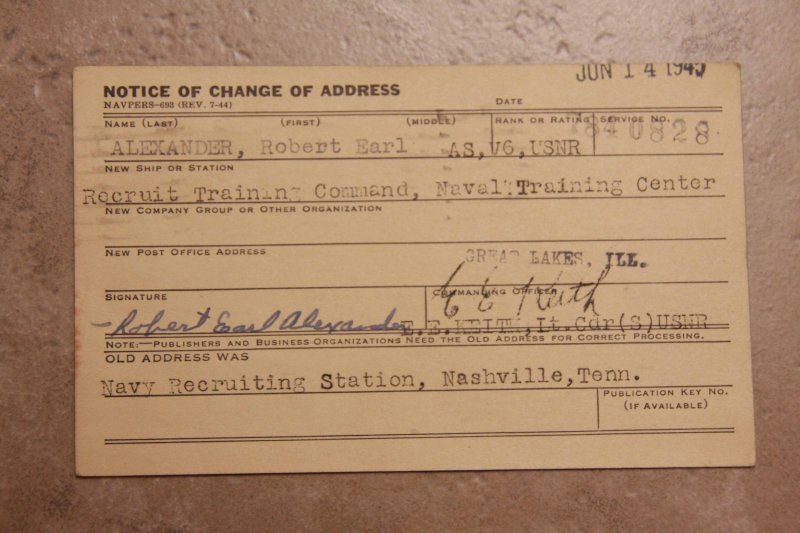 JUN 14 1945
NOTICE OF CHANGE OF ADDRESS
NAVPERS—693 (REV. 7-44)
DATE
NAME (LAST) (FIRST) (MIDDLE) RANK OR RATING SERVICE NO.
840828
ALEXANDER, Robert Earl AS,V6,USNR
NEW SHIP OR STATION
Recruit Training Command, Naval Training Center
NEW COMPANY GROUP OR OTHER ORGANIZATION
NEW POST OFFICE ADDRESS
GREAT LAKES, ILL.
SIGNATURE COMMANDING OFFICER
Robert Earl Alexander
E.E.KEITH,Lt.Cdr(S)USNR
NOTE:—PUBLISHERS AND BUSINESS ORGANIZATIONS NEED THE OLD ADDRESS FOR CORRECT PROCESSING.
OLD ADDRESS WAS
Navy Recruiting Station, Nashville,Tenn.
PUBLICATION KEY NO.
(IF AVAILABLE)